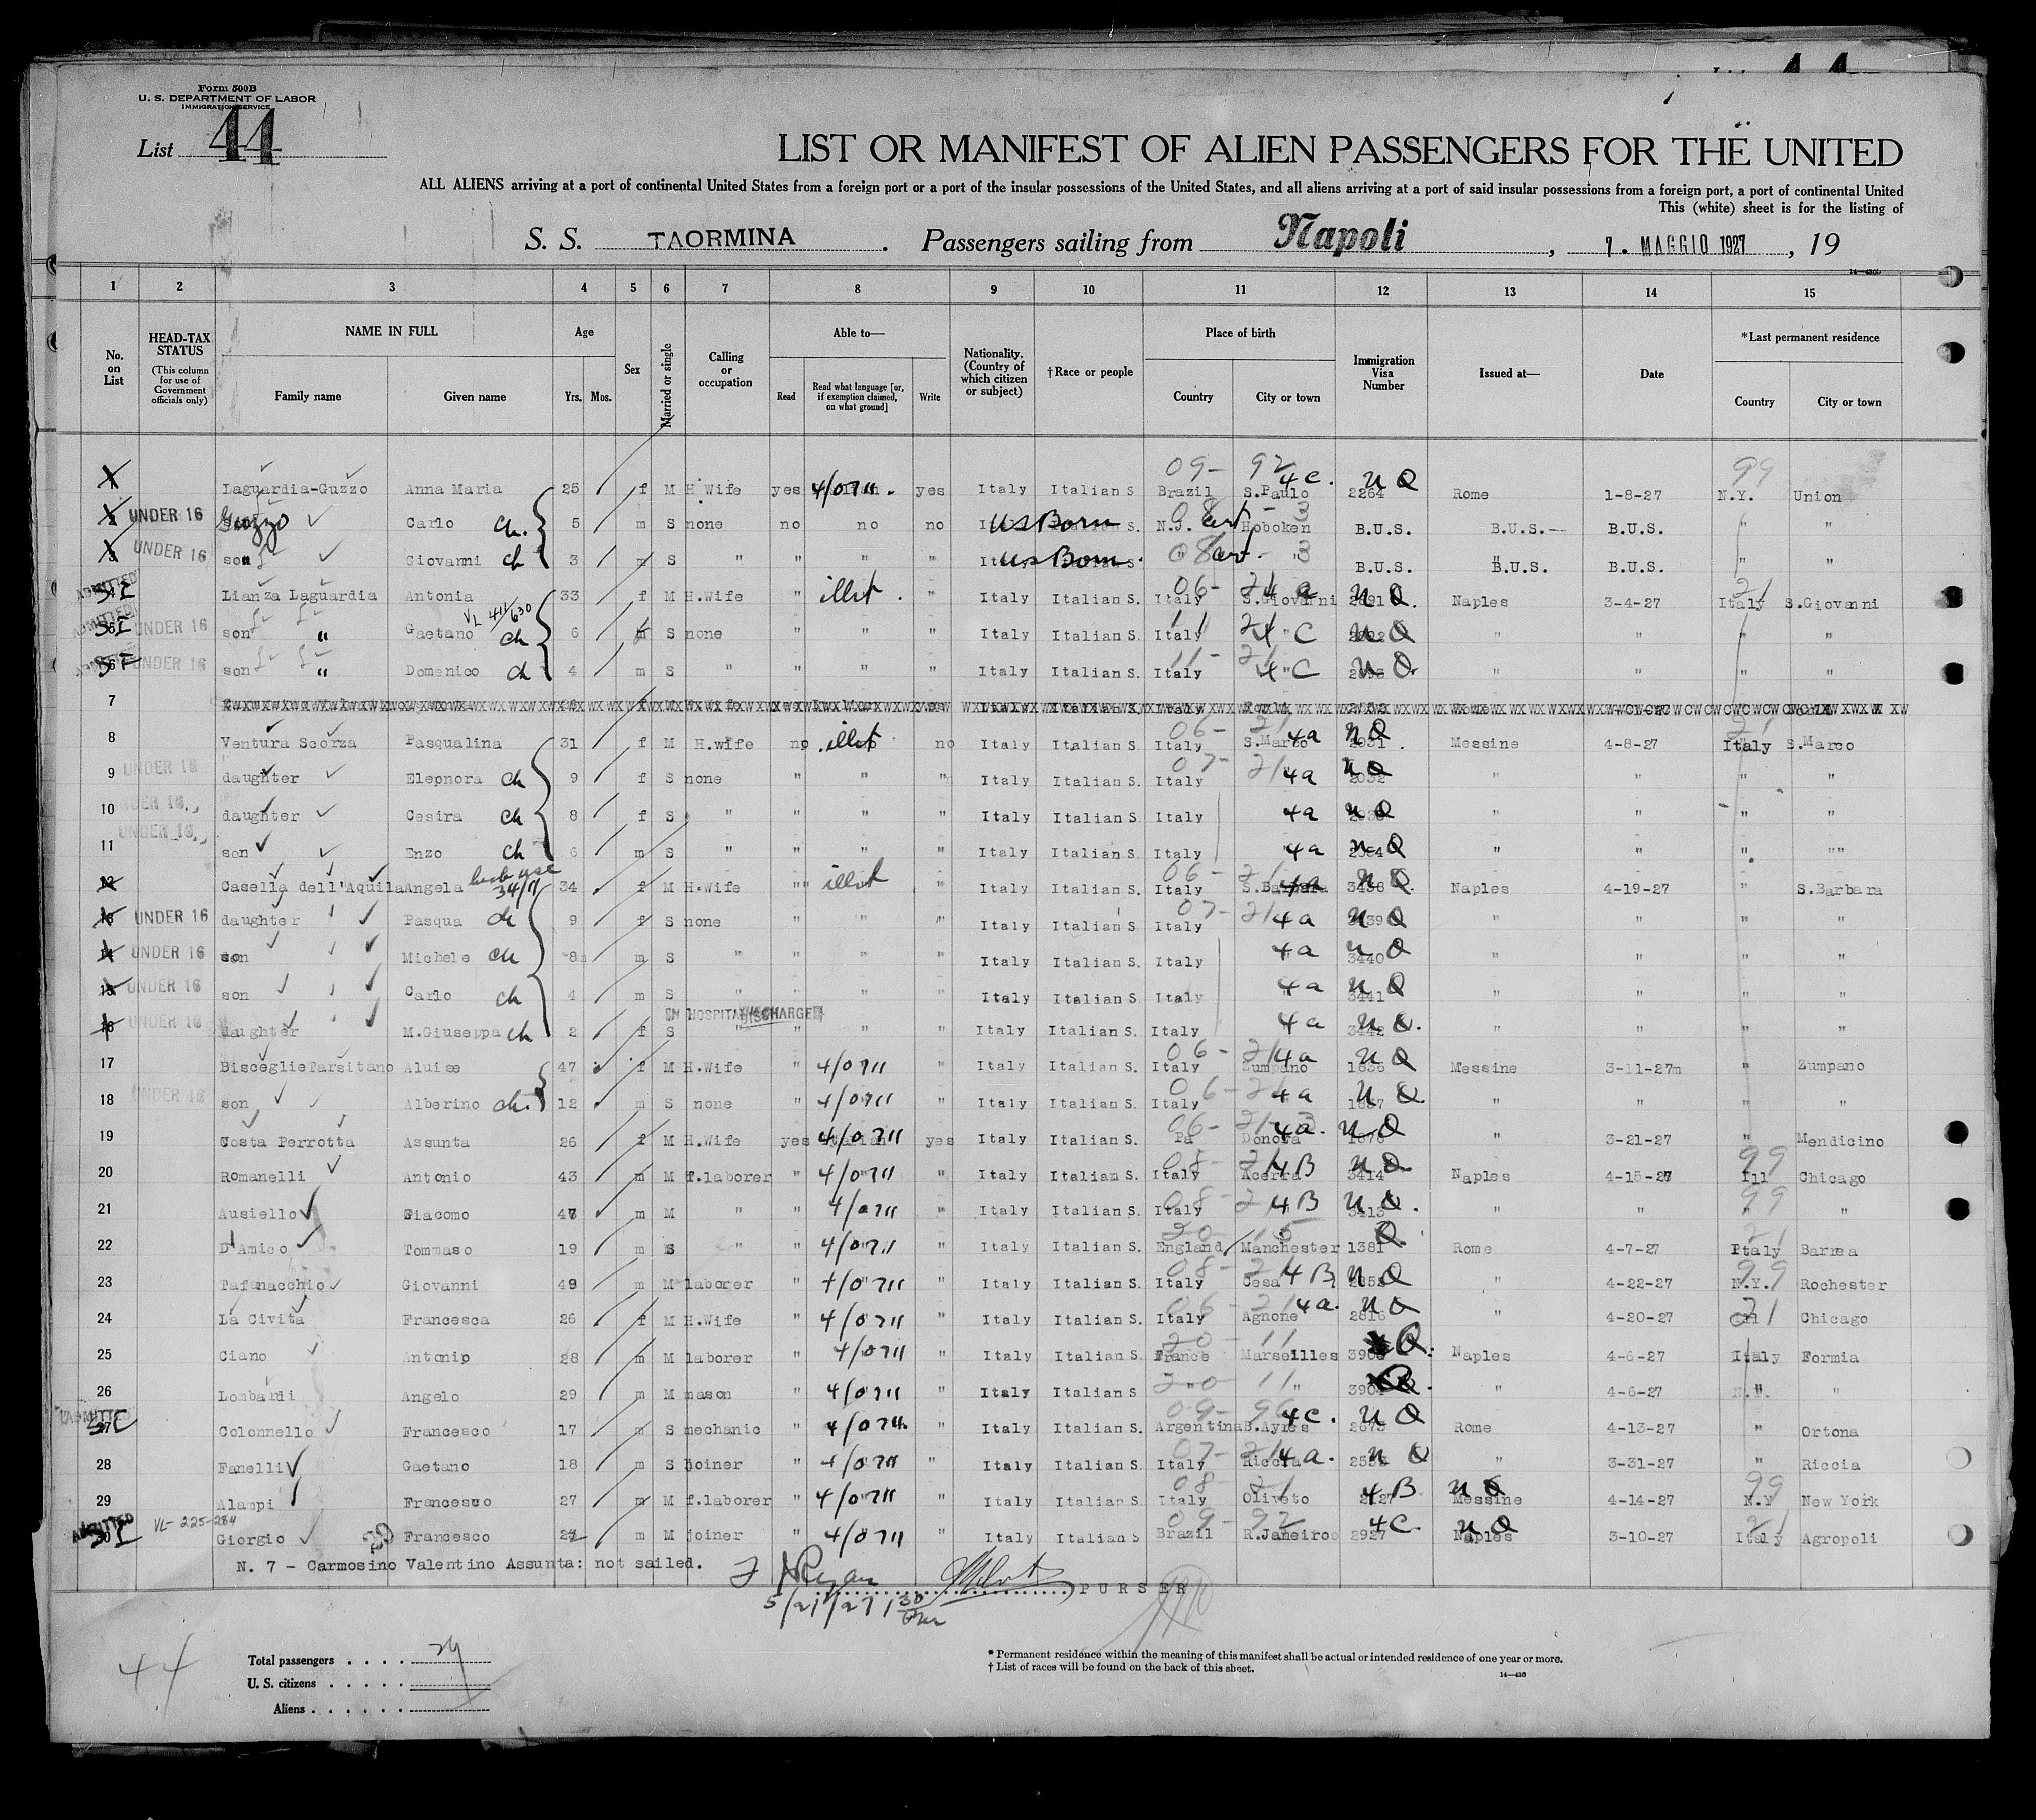 Form 500B
U. S. DEPARTMENT OF LABOR
IMMIGRATION SERVICE
List 44
LIST OR MANIFEST OF ALIEN PASSENGERS FOR THE UNITED
ALL ALIENS arriving at a port of continental United States from a foreign port or a port of the insular possessions of the United States, and all aliens arriving at a port of said insular possessions from a foreign port, a port of continental United
This (white) sheet is for the listing of
S. S. TAORMINA. Passengers sailing from Napoli, 7. MAGGIO 1927, 19
1 2 3 4 5 6 7 8 9 10 11 12 13 14 15
No. on List HEAD-TAX STATUS (This column for use of Government officials only) NAME IN FULL Family name Given name Age Yrs. Mos. Sex Married or single Calling or occupation Able to— Read Read what language [or, if exemption claimed, on what ground] Write Nationality. (Country of which citizen or subject) †Race or people Place of birth Country City or town Immigration Visa Number Issued at— Date *Last permanent residence Country City or town
Laguardia-Guzzo Anna Maria 25 f M H.Wife yes 4/0711. yes Italy Italian S 09- 92 Brazil S.Paulo 4c. 2264 n Q Rome 1-8-27 99 N.Y. Union
UNDER 16 Guzzo Carlo ch. 5 m S none no no no US Born N.J. Hoboken B.U.S. B.U.S. B.U.S. " "
UNDER 16 son Giovanni ch 3 m S " " " " US Born. " " B.U.S. B.U.S. B.U.S. " "
ADMITTED Lianza Laguardia Antonia 33 f M H.Wife " illit. " Italy Italian S. 06- 21 Italy S.Giovanni Naples 3-4-27 Italy S.Giovanni
ADMITTED UNDER 16 son " Gaetano ch 6 m S none " " " Italy Italian S. Italy 4 C " " " "
UNDER 16 son " Domenico ch 4 m S " " " " Italy Italian S. Italy 4 C " " " "
7
8 Ventura Scorza Pasqualina 31 f M H.wife no illit no Italy Italian S. 06- 21 Italy S.Marco 4a n Q Messine 4-8-27 Italy S.Marco
9 UNDER 16 daughter Eleonora ch 9 f S none " " " Italy Italian S. 07- 21 Italy 4a n Q 2032 " " " "
10 UNDER 16 daughter Cesira ch 8 f S " " " " Italy Italian S. Italy 4a n Q " " " "
11 UNDER 16 son Enzo ch 6 m S " " " " Italy Italian S. Italy 4a n Q " " " ""
12 Casella dell'Aquila Angela 34 f M H.Wife " illit " Italy Italian S. 06- 21 Italy S.Barbara 4a 3438 n Q Naples 4-19-27 " S.Barbara
13 UNDER 16 daughter Pasqua ch 9 f S none " " " Italy Italian S. 07- 21 Italy 4a 3439 n Q " " " "
14 UNDER 16 son Michele ch 8 m S " " " " Italy Italian S. Italy 4a 3440 n Q " " " "
15 UNDER 16 son Carlo ch 4 m S " " " " Italy Italian S. Italy 4a 3441 n Q " " " "
IN HOSPITAL DISCHARGED
16 UNDER 16 daughter M.Giuseppa ch 2 f S " " " " Italy Italian S. Italy 4a 3442 n Q. " " " "
17 Bisceglie Tarsitano Aluise 47 f M H.Wife " 4/0711 " Italy Italian S. 06- 21 Italy Zumpano 4a 1636 n Q Messine 3-11-27m " Zumpano
18 UNDER 16 son Alberino ch. 12 m S none " 4/0711 " Italy Italian S. 06- 21 Italy 4a n Q. " " " "
19 Costa Perrotta Assunta 26 f M H.Wife yes 4/0711 yes Italy Italian S. 06- Pa Donora 4a. n Q " 3-21-27 " Mendicino
20 Romanelli Antonio 43 m M f.laborer " 4/0711 " Italy Italian S. 08- 21 Italy Acerra 4B 3414 n Q Naples 4-15-27 99 Ill Chicago
21 Ausiello Giacomo m M " " 4/0711 " Italy Italian S. 08- 2 Italy 4B n Q. " " 99 " "
22 D'Amico Tommaso 19 m S " " 4/0711 " Italy Italian S. 20- 15 England Manchester 1381 Q. Rome 4-7-27 21 Italy Barrea
23 Tafanacchio Giovanni 49 m M laborer " 4/0711 " Italy Italian S. 08- 2 Italy Cesa 4B n Q " 4-22-27 99 N.Y. Rochester
24 La Civita Francesca 26 f M H.Wife " 4/0711 " Italy Italian S. 06- 21 Italy Agnone 4a. 2816 n Q " 4-20-27 21 Chicago
25 Ciano Antonip 28 m M laborer " 4/0711 " Italy Italian S. 20 11 France Marseilles Q. Naples 4-6-27 Italy Formia
26 Lombardi Angelo 29 m M mason " 4/0711 " Italy Italian S 20 11 " " 3904 " 4-6-27 " "
ADMITTED Colonnello Francesco 17 m S mechanic " 4/0711 " Italy Italian S. 09- Argentina B.Ayres 4c. n Q Rome 4-13-27 " Ortona
28 Fanelli Gaetano 18 m S joiner " 4/0711 " Italy Italian S. 07- 21 Italy Riccia 4a. n Q " 3-31-27 " Riccia
29 Alampi Francesco 27 m M f.laborer " 4/0711 " Italy Italian S. 08- 21 Italy Oliveto 4B n Q Messine 4-14-27 99 N.Y New York
ADMITTED VL-225-284 Giorgio Francesco m M joiner " 4/0711 " Italy Italian S 09- 92 Brazil R.Janeiro 2927 4C. n Q Naples 3-10-27 21 Italy Agropoli
N. 7 - Carmosino Valentino Assunta: not sailed.
PURSER
5/21/27
44
Total passengers
U. S. citizens
Aliens
* Permanent residence within the meaning of this manifest shall be actual or intended residence of one year or more.
† List of races will be found on the back of this sheet.
14—430